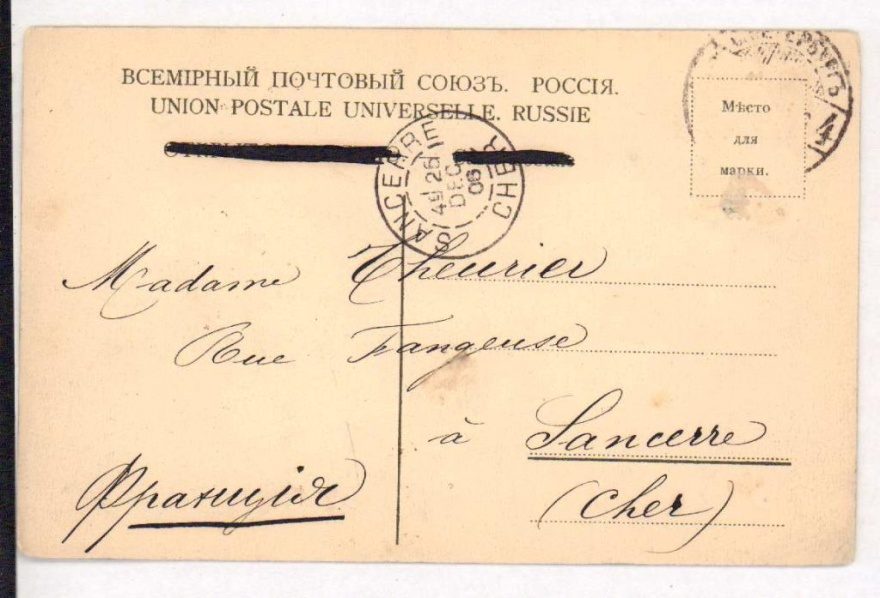 ВСЕМІРНЫЙ ПОЧТОВЫЙ СОЮЗЪ. РОССІЯ.
UNION POSTALE UNIVERSELLE. RUSSIE
Мѣсто
для
марки.
SANCERRE
CHER
26
DEC
06
Madame Theurier
Rue Fangeuse
à Sancerre
(Cher)
Франція